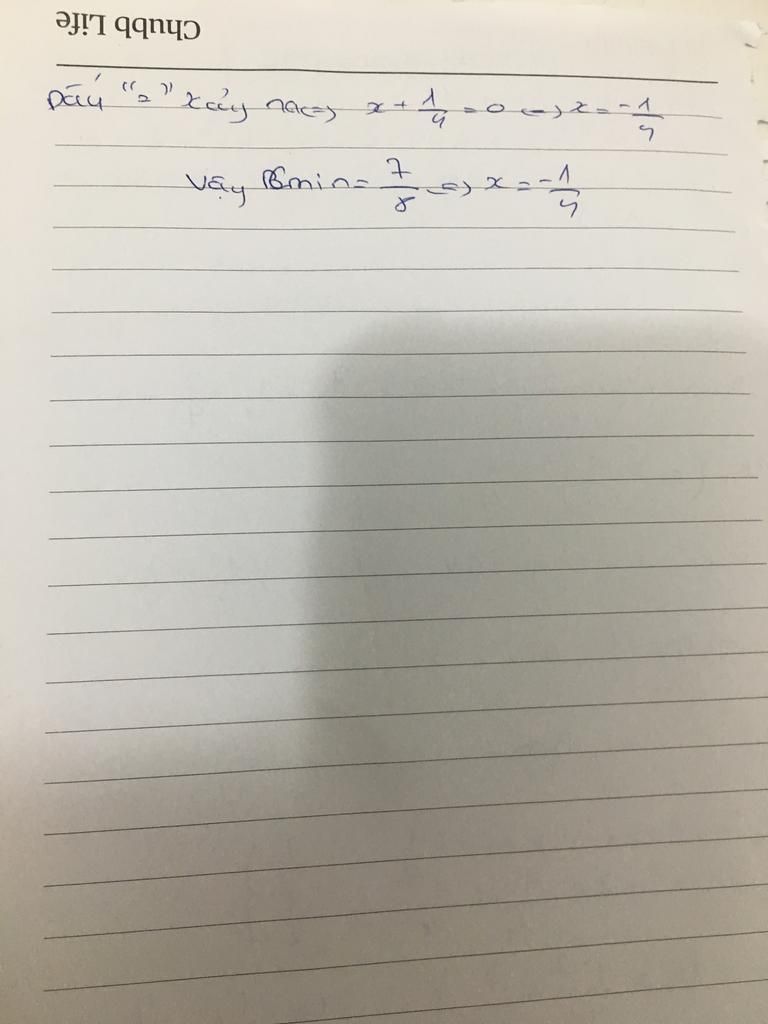 Chubb Life
Dấu "=" xảy ra <=> x + 1/4 = 0 <=> x = -1/4
Vậy Bmin = 7/8 <=> x = -1/4